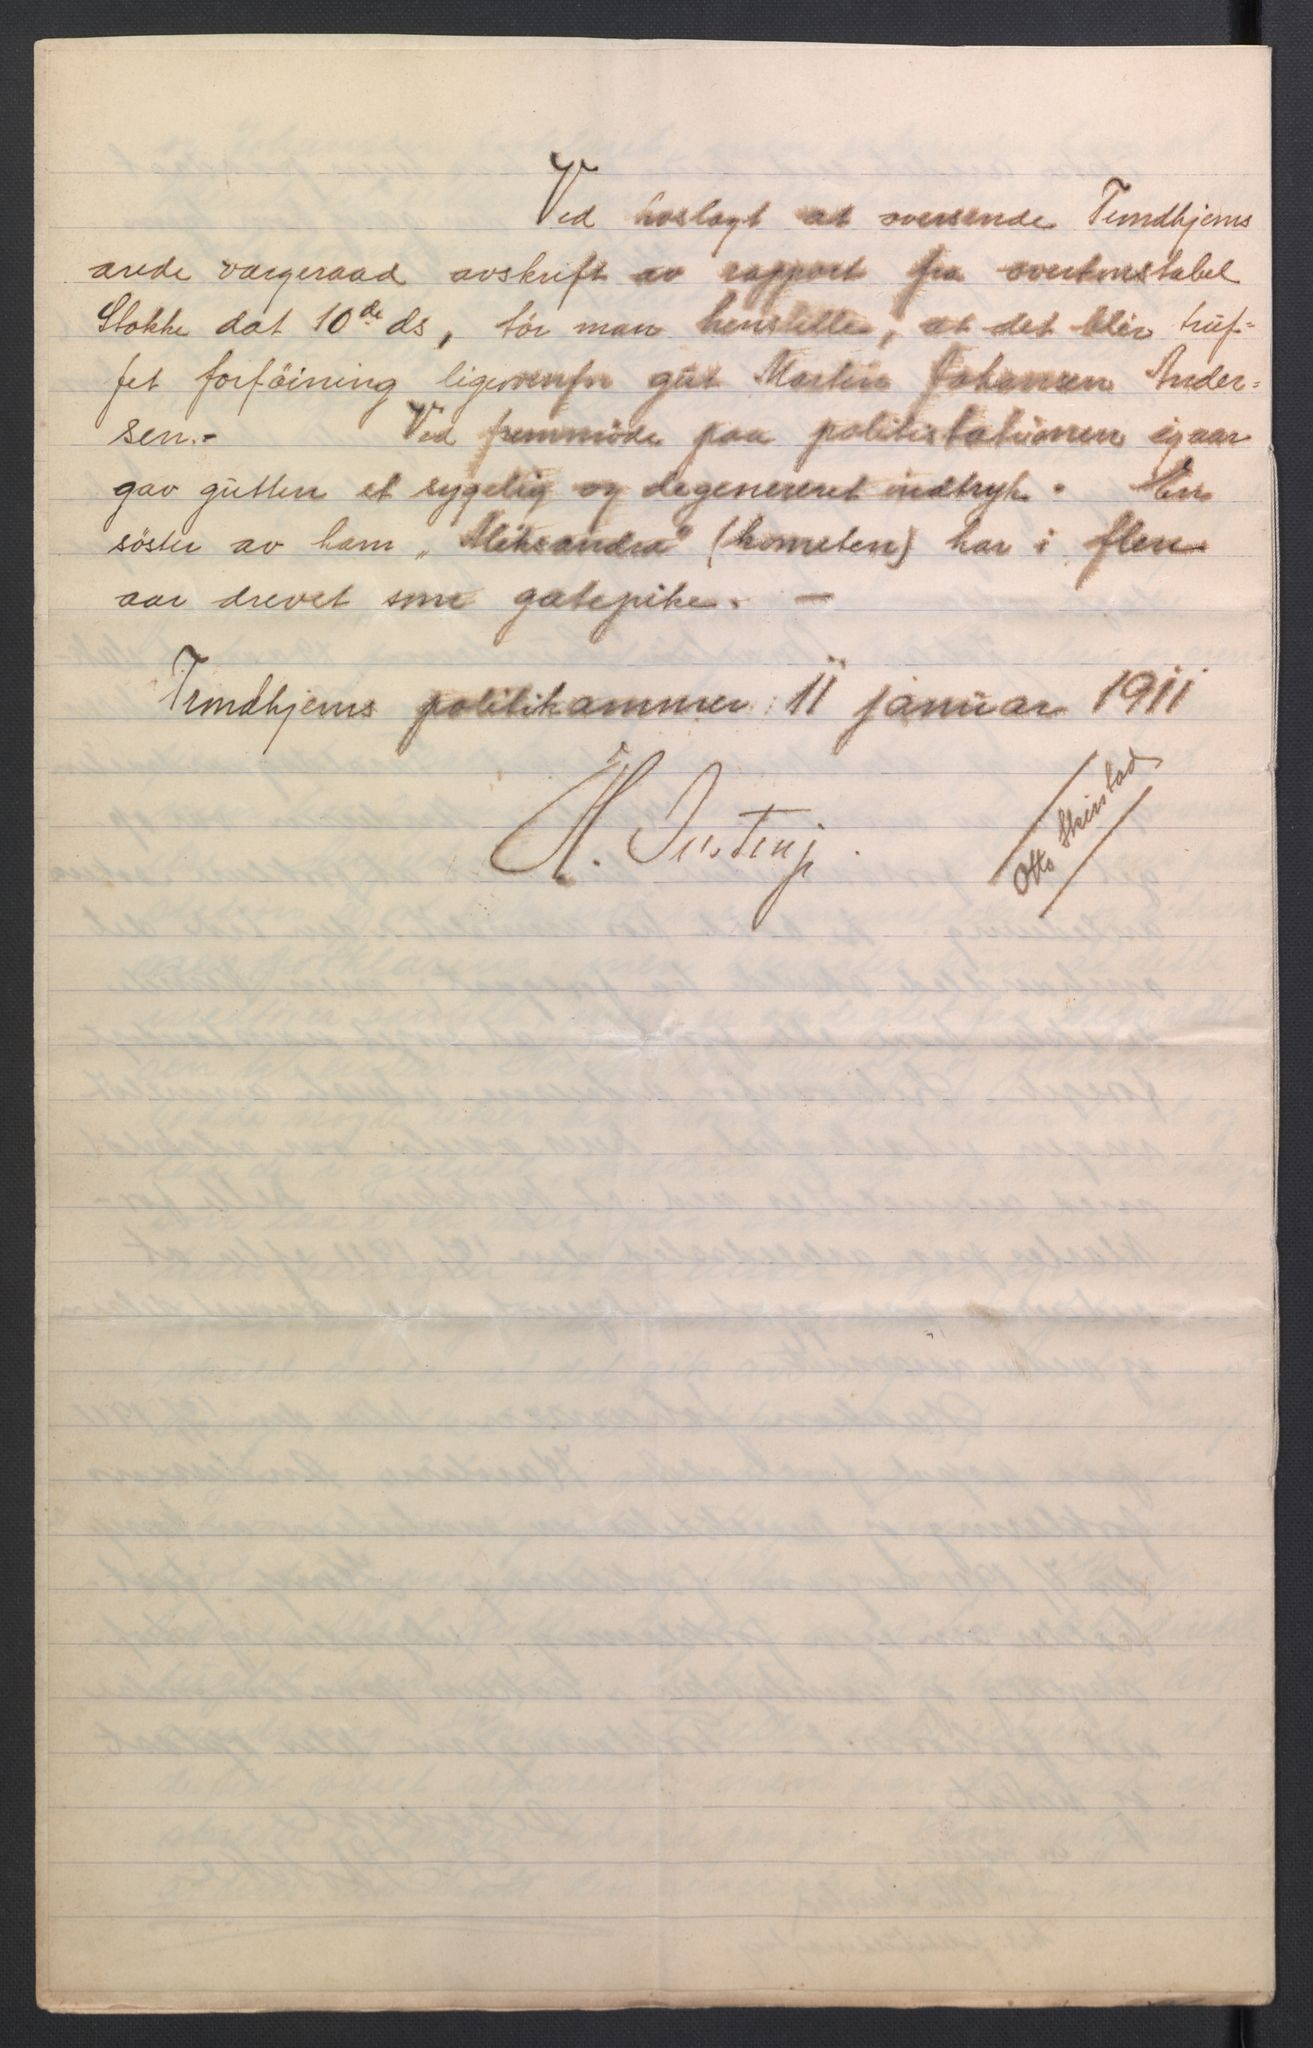 Ved hoslagt at oversende Trondhjems
ærede værgeraad avskrift av rapport fra overkonstabel
Stokke dat 10de ds, tör man henstille, at det blir truf=
fet forföining ligeoverfor gut Martin Johansen Ander=
sen.- Ved fremmöde paa politistationen igaar
gav gutten et sygelig og degenereret indtryk. En
söster av ham „Aleksandra" (kometen) har i flere
aar drevet som gatepike. —
Trondhjems politikammer 11 januar 1911
Otto Skirstad